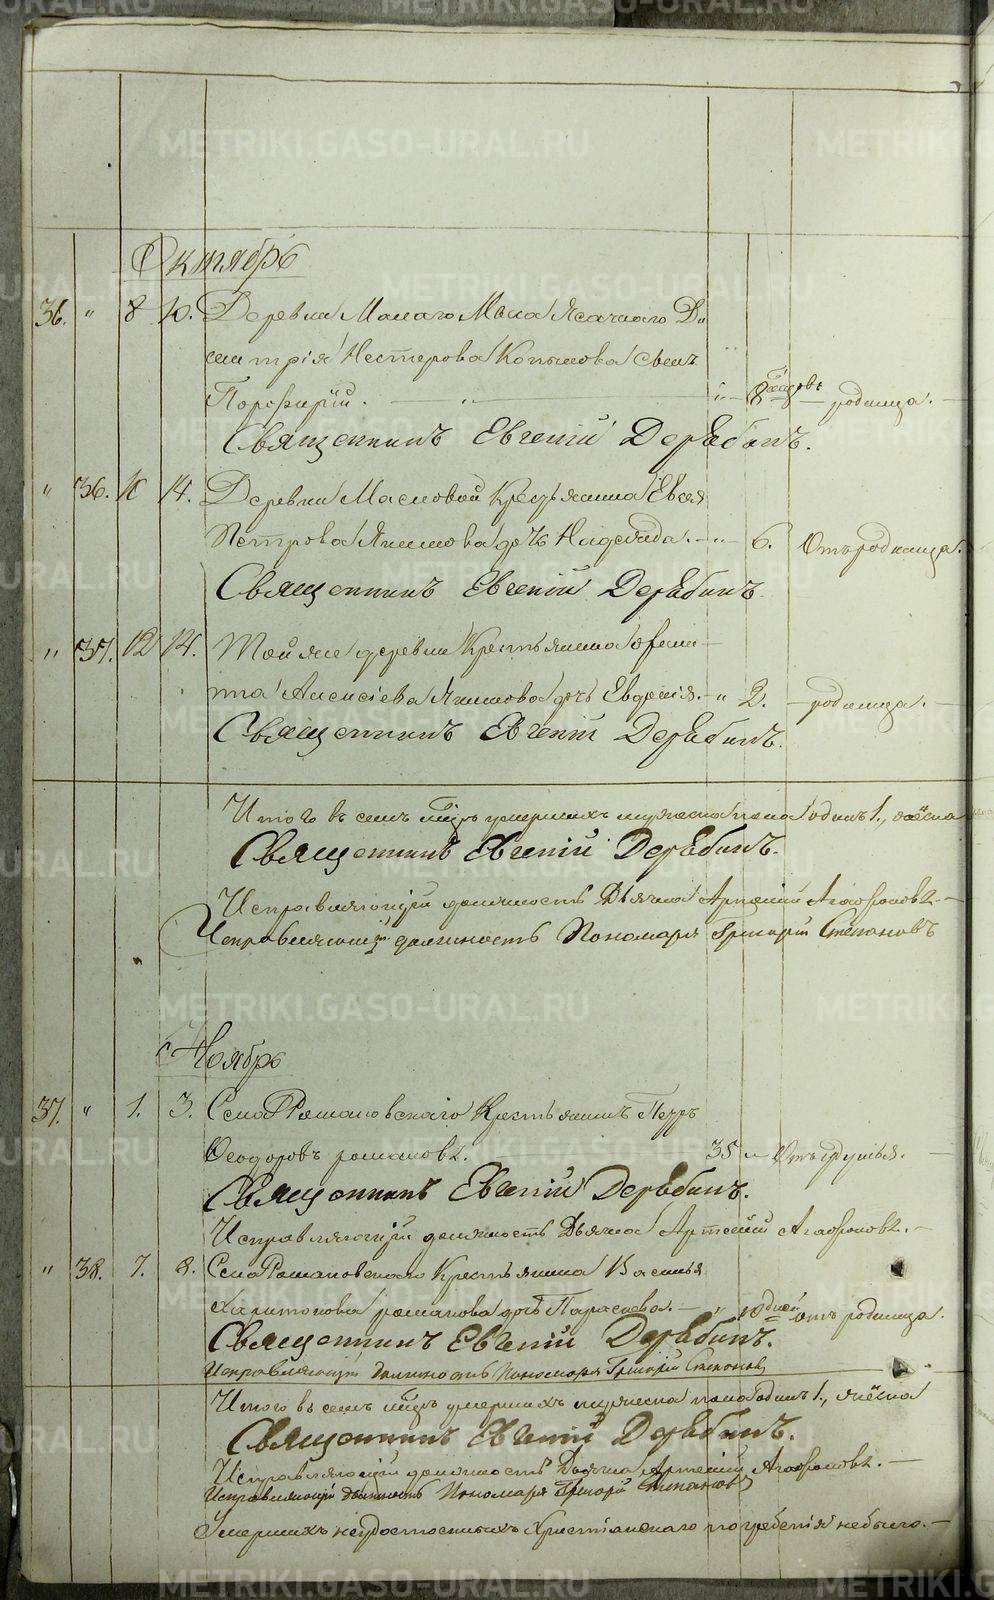 Октябрь
36. " 8 10. Деревни Малаго Маса Ясачнаго Ди
митрія Нестерова Копылова сынъ
Порфирій. — " — " 8 родимца. —
Священникъ Евгеній Дерябинъ.
" 36. 10 14. Деревни Масловой Крестьянина Евсея
Петрова Якимова дочь Надежда. — " 6. Отъ родимца.
Священникъ Евгеній Дерябинъ.
" 37. 12 14. Той же деревни Крестьянина
Алексіева Якимова дочь Евдокія. — " 2. — родимца. —
Священникъ Евгеній Дерябинъ.
Итого въ семъ м-цѣ умершихъ мужеска пола одинъ 1., женска
Священникъ Евгеній Дерябинъ.
Исправляющій должность Дьячка Артемій Агафоновъ. —
Исправляющій должность Пономаря Григорій Степановъ
Ноябрь
37. " 1. 3. Села Романовскаго Крестьянинъ Петръ
Ѳеодоровъ романовъ. 35 " Отъ удушья. —
Священникъ Евгеній Дерябинъ.
Исправляющій должность Дьячка Артемій Агафоновъ. —
" 38. 7. 8. Села Романовскаго Крестьянина Василья
Харитонова романова дочь Параскева. — " 10 дней отъ родимца.
Священникъ Евгеній Дерябинъ.
Исправляющій должность Пономаря Григорій Степановъ
Итого въ семъ м-цѣ умершихъ мужеска пола одинъ 1., женска
Священникъ Евгеній Дерябинъ.
Исправляющій должность Дьячка Артемій Агафоновъ. —
Исправляющій должность Пономаря Григорій Степановъ
Умершихъ неудостоенныхъ Христіанскаго погребенія небыло. —
METRIKI.GASO-URAL.RU